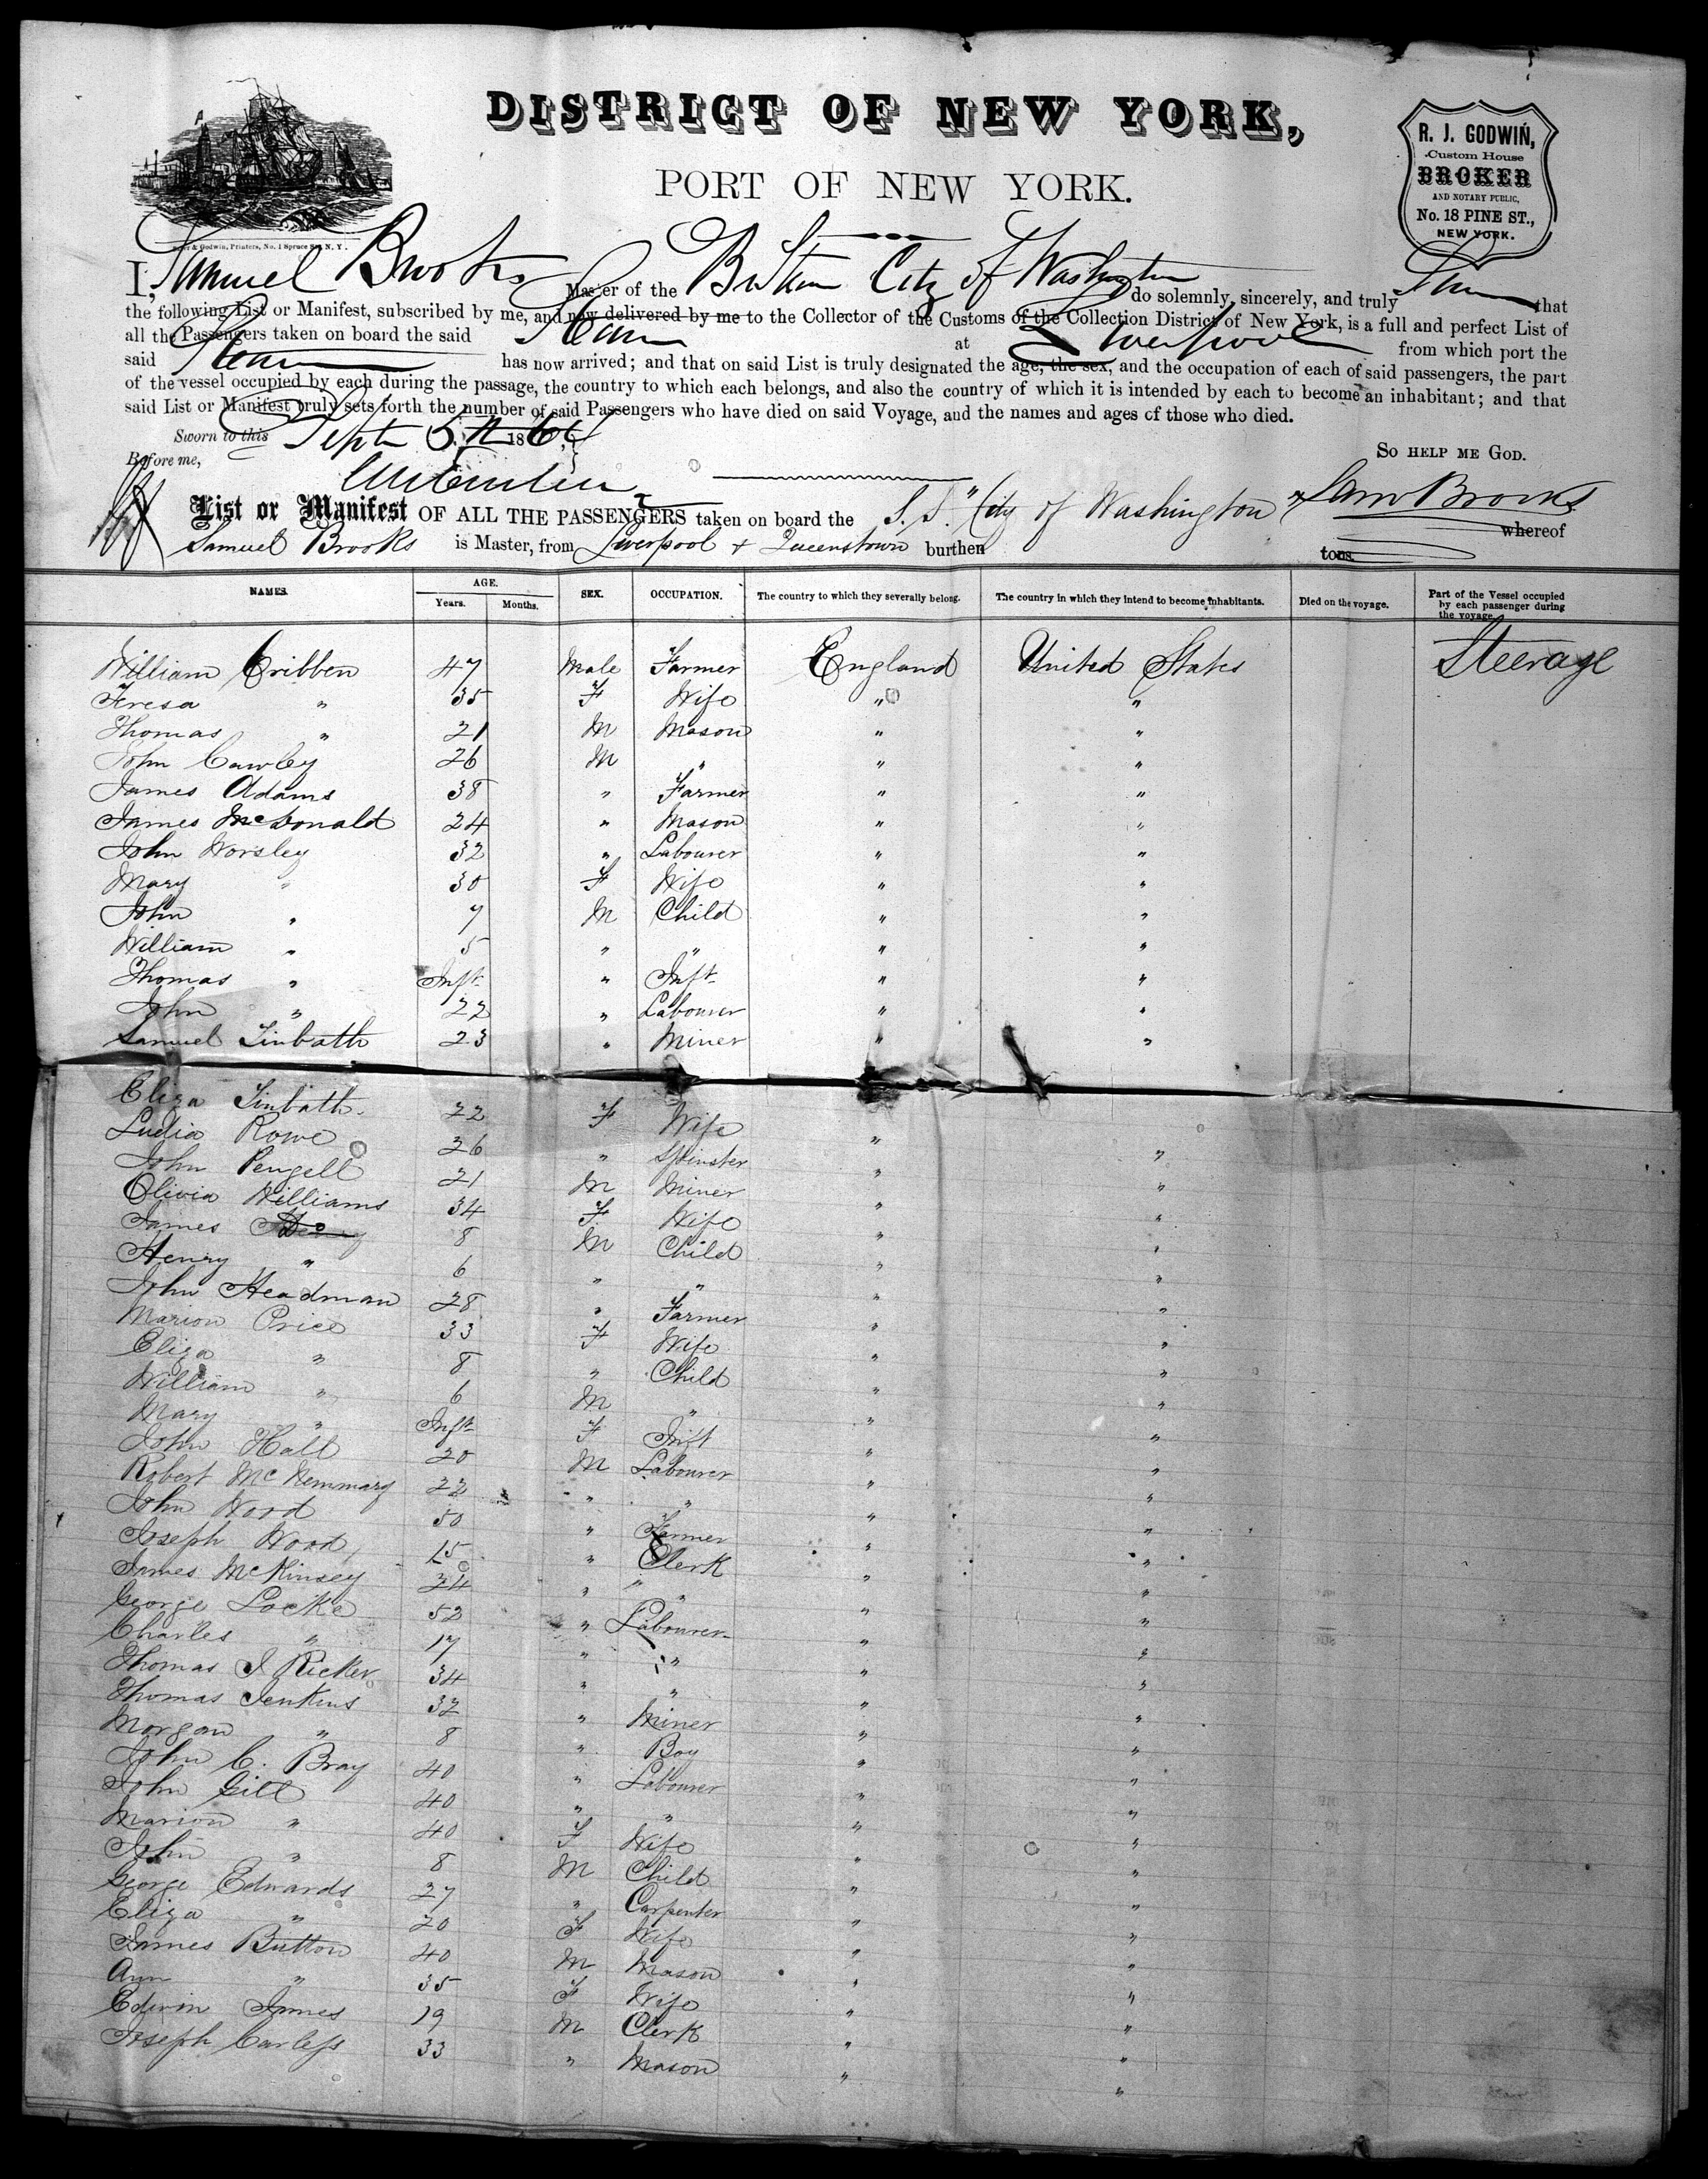 DISTRICT OF NEW YORK,
PORT OF NEW YORK.
R. J. GODWIN,
Custom House
BROKER
AND NOTARY PUBLIC,
No. 18 PINE ST.,
NEW YORK.
& Godwin, Printers, No. 1 Spruce St. N. Y.
I, Samuel Brooks Master of the City of Washington do solemnly, sincerely, and truly that
the following List or Manifest, subscribed by me, and now delivered by me to the Collector of the Customs of the Collection District of New York, is a full and perfect List of
all the Passengers taken on board the said Steamer at Liverpool from which port the
said Steamer has now arrived; and that on said List is truly designated the age, the sex, and the occupation of each of said passengers, the part
of the vessel occupied by each during the passage, the country to which each belongs, and also the country of which it is intended by each to become an inhabitant; and that
said List or Manifest truly sets forth the number of said Passengers who have died on said Voyage, and the names and ages of those who died.
Sworn to this Sept 5th 186
So HELP ME GOD.
Before me,
Sam Brooks
List or Manifest OF ALL THE PASSENGERS taken on board the S.S. "City of Washington" whereof
Samuel Brooks is Master, from Liverpool + Queenstown burthen tons.
NAMES. AGE. SEX. OCCUPATION. The country to which they severally belong. The country in which they intend to become inhabitants. Died on the voyage. Part of the Vessel occupied by each passenger during the voyage.
Years. Months.
William Cribben 47 Male Farmer England United States Steerage
Teresa " 35 F Wife " "
Thomas " 21 M Mason " "
John Cawley 26 M " " "
James Adams 38 " Farmer " "
James McDonald 24 " Mason " "
John Worsley 32 " Labourer " "
Mary " 30 F Wife " "
John " 7 M Child " "
William " 5 " " " "
Thomas " Inft " Inft " "
John " 22 " Labourer " "
Samuel Tinbath 23 " Miner " "
Eliza Tinbath 22 F Wife " "
Ludia Rowe 26 " Spinster " "
John Pengell 21 M Miner " "
Olivia Williams 34 F Wife " "
James 8 M Child " "
Henry " 6 " " " "
John Headman 28 " Farmer " "
Marion Price 33 F Wife " "
Eliza " 8 " Child " "
William " 6 M " " "
Mary " Inft F Inft " "
John Hall 20 M Labourer " "
Robert Mc 22 " " " "
John Wood 50 " Farmer " "
Joseph Wood 15 " Clerk " "
James McKinsey 24 " " " "
George Locke 52 " Labourer " "
Charles " 17 " " " "
Thomas J Ricker 34 " " " "
Thomas Jenkins 32 " Miner " "
Morgan " 8 " Boy " "
John C. Bray 40 " Labourer " "
John Gill 40 " " " "
Marion " 40 F Wife " "
John " 8 M Child " "
George Edwards 27 " Carpenter " "
Eliza " 20 F Wife " "
James Button 40 M Mason " "
Ann " 35 F Wife " "
Edwin James 19 M Clerk " "
Joseph Carless 33 " Mason " "